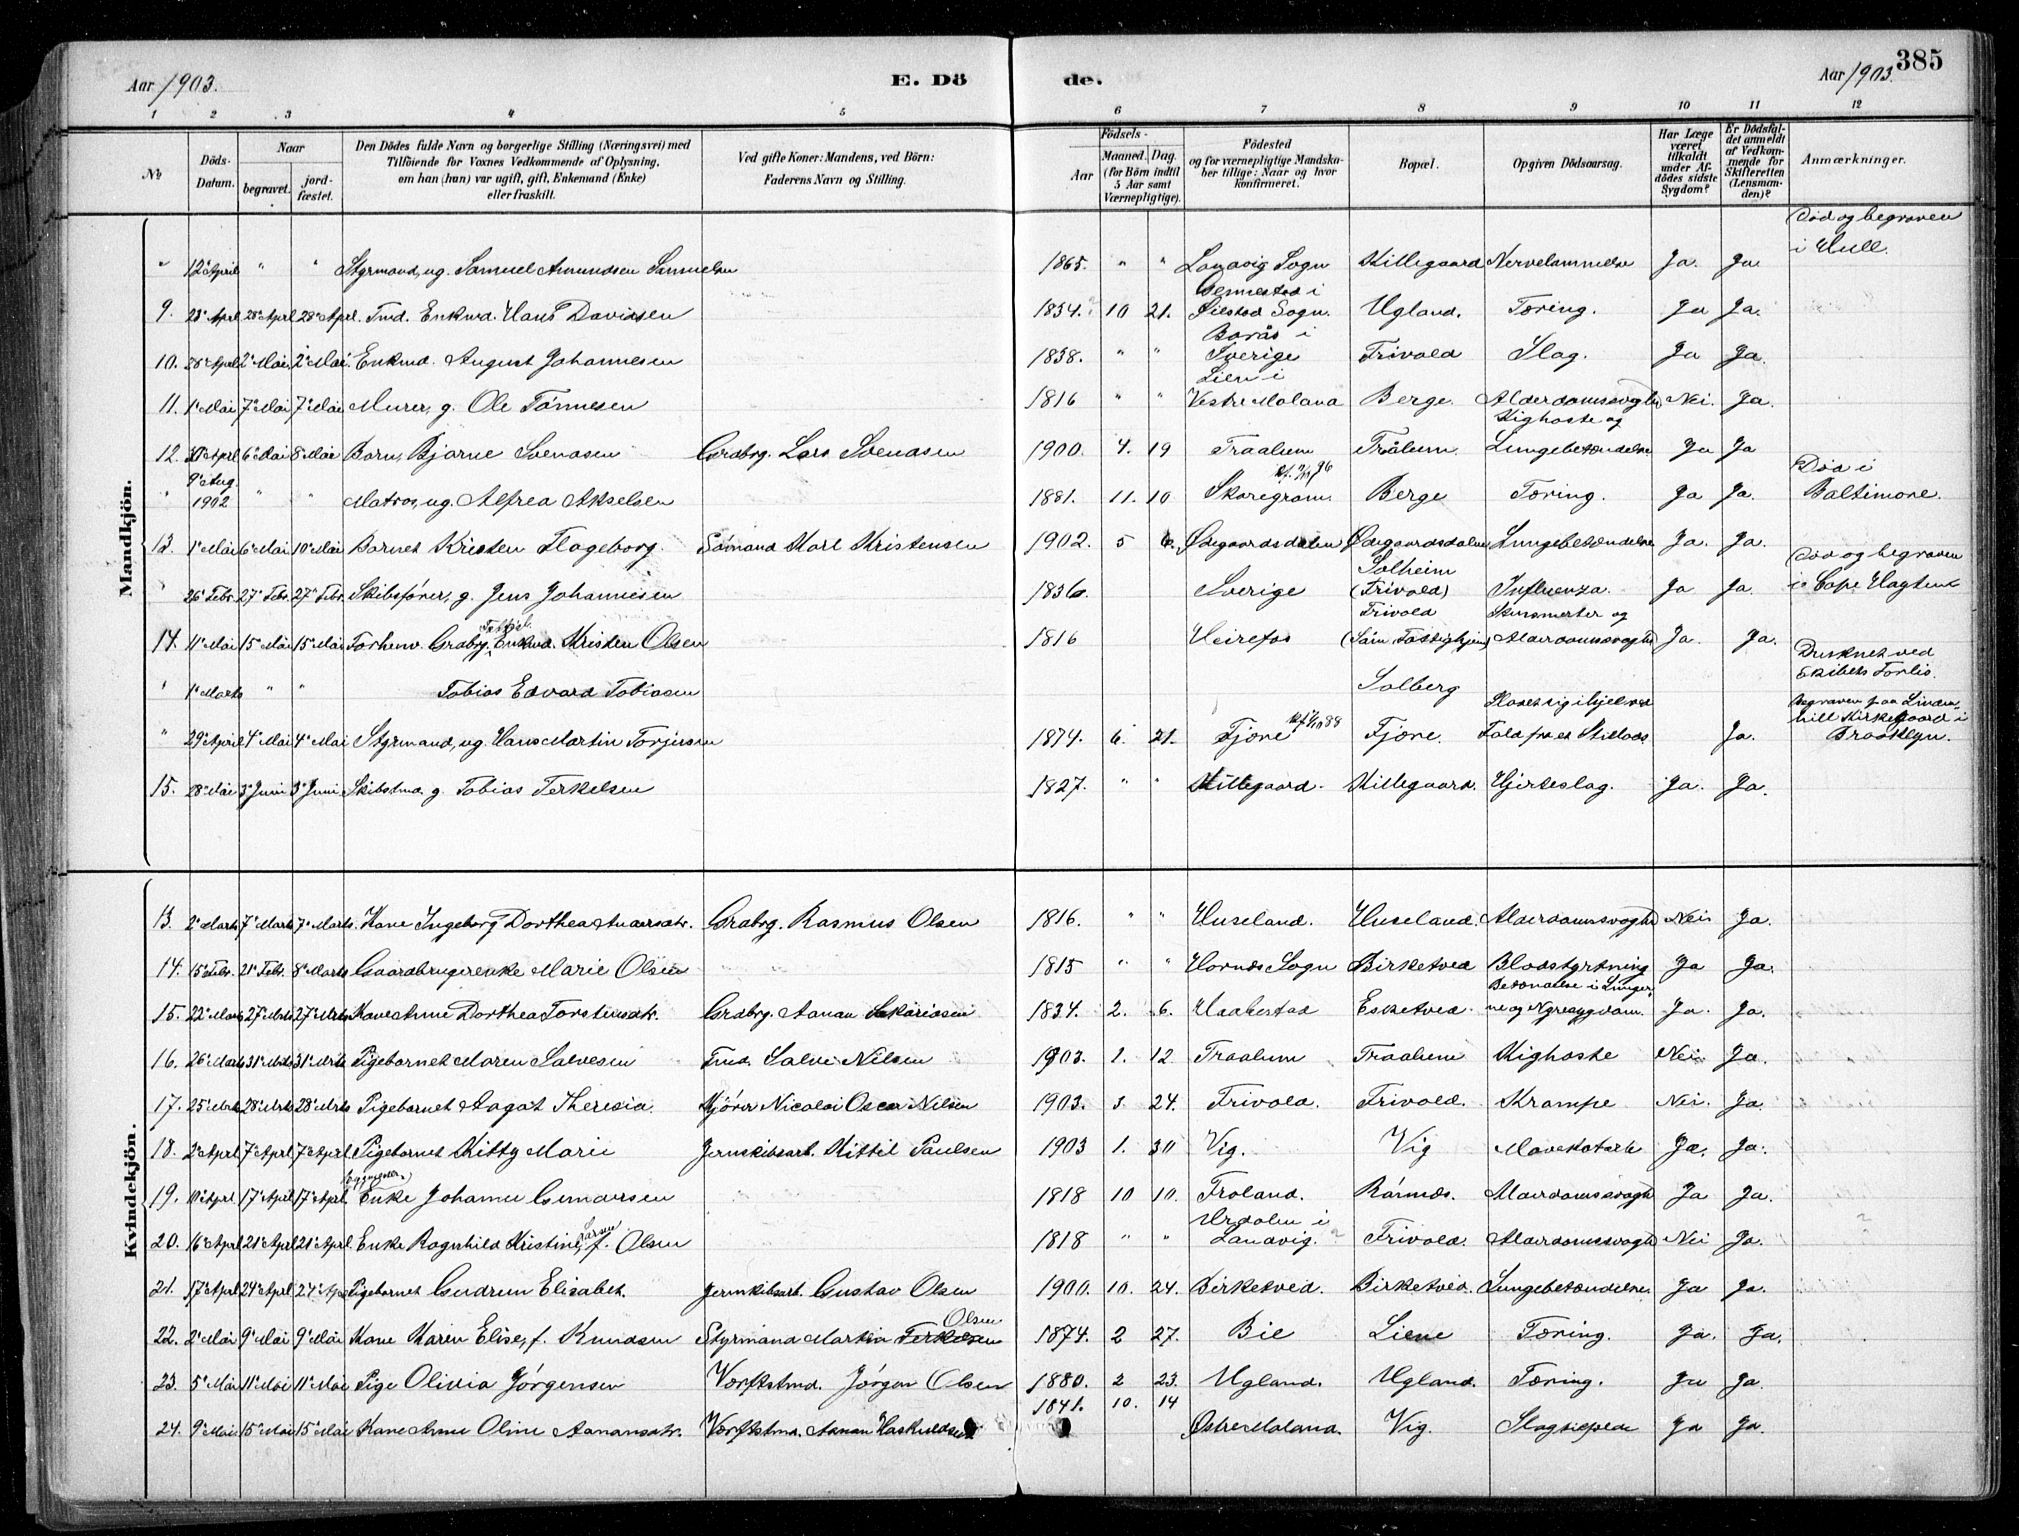 Aar 1903.
E. Dö
de.
Aar 1903.
385
1 2 3 4 5 6 7 8 9 10 11 12
No
Döds-Datum.
Naar
begravet.
jord-fæstet.
Den Dödes fulde Navn og borgerlige Stilling (Næringsvei) med
Tilföiende for Voxnes Vedkommende af Oplysning,
om han (hun) var ugift, gift, Enkemand (Enke)
eller fraskilt.
Ved gifte Koner: Mandens, ved Börn:
Faderens Navn og Stilling.
Födsels-
Aar
Maaned. Dag.
(for Börn indtil
5 Aar samt
Værnepligtige).
Födested
og for værnepligtige Mandska-
ber tillige: Naar og hvor
konfirmeret.
Bopæl.
Opgiven Dödsaarsag.
Har Læge
været
tilkaldt
under Af-
dödes sidste
Sygdom?
Er Dödsfal-
det anmeldt
af Vedkom-
mende for
Skifteretten
(Lensman-
den)?
Anmærkninger.
Mandkjön.
" 12' April " " Styrmand, ug. Samuel Amundsen Samuelsen 1865. " " Landvig Sogn Killegaard Ja. Ja. Död og begraven i Hull.
9. 23' April 28' April 28' April. Tmd. Enkmd. Hans Davidsen 1834. 10 21. Øiestad Sogn. Ugland. Tæring. Ja Ja.
10. 28' April 2' Mai 2' Mai Enkmd. August Johannesen 1838. " " Borås i Sverige Frivold Slag. Ja Ja.
11. 1' Mai 7' Mai 7' Mai Murer, g. Ole Tönnesen 1816 " " Lien i Vestre Moland Berge. Alderdomssvaghed Nei. Ja.
12. 30' April 6' Mai 8' Mai Barn, Bjarne Svendsen Grdbrg. Lars Svendsen 1900. 4. 19 Traalum Trålum Kighoste og Lungebetændelse Ja Ja
" 9' Aug. 1902 " " Matros, ug. Alfred Akselsen 1881. 11. 10 Skaregrøm Berge Tæring. Ja Ja. Död i Baltimore.
13. 1' Mai 6' Mai 10' Mai Barnet Kristen Flageborg. Sömand Karl Kristensen 1902. 5 6. Ødegaardsdalen Ødegaardsdalen Lungebetændelse Ja. Ja.
" 26' Febr. 27' Febr. 27' Febr. Skibsförer, g. Jens Johannesen 1836. Sverige Solheim (Frivold) Influenza. Ja Ja. Död og begraven i Cape Haytien
14. 11' Mai 15' Mai 15' Mai Forhenv. Grdbrg. Enkmd. Kristen Olsen 1816 Heirefos Frivold Alderdomssvaghed Ja. Ja.
" 1' Marts " " Tobias Edvard Tobiasen Solberg Druknet ved Skibets Forlis.
" 29' April 4' Mai 4' Mai Styrmand, ug. Hans Martin Torjusen 1874. 6. 21. Fjære Fjære. Slaaet sig ihjel ved Fald fra et Stillads. Ja. Begraven paa Linden hill Kirkegaard i Brooklyn.
15. 28' Mai 3' Juni 3' Juni Skibstmd. g. Tobias Terkelsen 1827. " " Killegaard. Killegaard. Hjerteslag. Ja. Ja.
Kvindekjön.
13. 2' Marts 7' Marts 7' Marts. Kone Ingeborg Dorthea Andersdtr. Grdbrg. Rasmus Olsen 1816. " " Huseland. Huseland. Alderdomssvaghed Nei Ja.
14. 15' Febr. 21' Febr. 8' Marts Gaardbrugerenke Marie Olsen 1815 " " Hornnes Sogn Birketved Blodstyrtning Ja Ja.
15. 22' Marts 27' Marts 27' Mrts Kone Anne Dorthea Torstensdtr. Grdbrg. Aanan Sakariasen 1834. 2. 6. Haabestad Esketved Betændelse i Lungerne og Nyresygdom. Ja. Ja.
16. 26' Marts 31' Mrts 31' Mrts Pigebarnet Maren Salvesen Tmd. Salve Nilsen 1903. 1. 12 Traalum Traalum Kighoste Nei Ja.
17. 25' Mrts 28' Mrts 28' Mrts Pigebarnet Aagot Theresia. Kjörer Nicolai Oscar Nilsen 1903. 3 24. Frivold. Frivold. Krampe Nei. Ja.
18. 2' April 7' April 7' April Pigebarnet Kitty Marie Jernskibsarb. Kittil Paulsen 1903 1. 30 Vig. Vig Mavekatarh Ja. Ja.
19. 10' Aprl 17' Aprl 17' Aprl. Enke Johanne Gundersen 1818 10 10. Froland. Rönnes. Alderdomssvaghed Ja Ja.
20. 16' Aprl 21' April 21' April. Enke Ragnhild Kristine, f. Larsen Olsen 1818 " " Urdalen i Landvig. Frivold. Alderdomssvaghed Nei Ja.
21. 17' Aprl 24' Aprl 24' Aprl Pigebarnet Gudrun Elisabet. Jernskibsarb. Gustav Olsen 1900. 10. 24. Birketved. Birketved. Lungebetændelse. Ja Ja.
22. 2' Mai 9' Mai 9' Mai Kone Karen Elise, f. Knudsen Styrmand Martin Terkelsen Olsen 1874. 2 27. Bie Liene Tæring. Ja. Ja.
23. 5' Mai 11' Mai 11' Mai Pige Olivia Jörgensen Værftstmd. Jörgen Olsen 1880. 2 23. Ugland. Ugland. Tæring. Ja Ja.
24. 9' Mai 15' Mai 15' Mai Kone Anne Oline Aanansdtr. Værftstmd. Aanan Haskuldsen 1841. 10. 14 Østre Moland. Vig. Ja Ja.